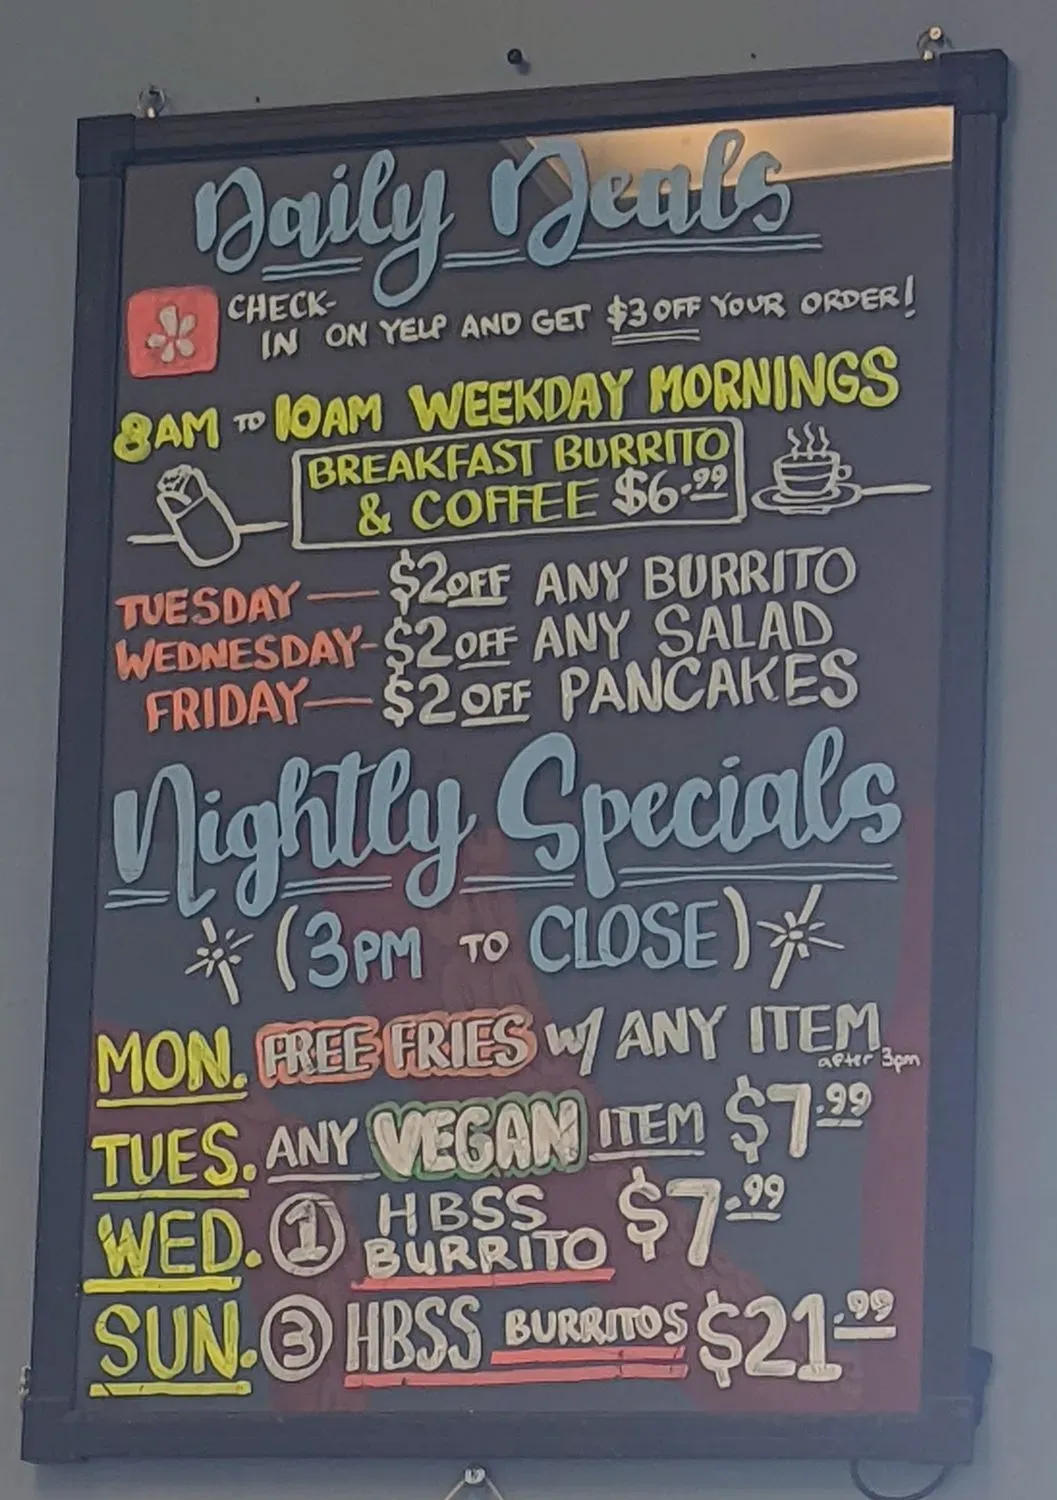 Daily Deals
CHECK-
IN ON YELP AND GET $3 OFF YOUR ORDER!
8AM TO 10AM WEEKDAY MORNINGS
BREAKFAST BURRITO
& COFFEE $6.99
TUESDAY — $2 OFF ANY BURRITO
WEDNESDAY - $2 OFF ANY SALAD
FRIDAY — $2 OFF PANCAKES
Nightly Specials
(3PM TO CLOSE)
MON. FREE FRIES w/ ANY ITEM
after 3pm
TUES. ANY VEGAN ITEM $7.99
WED. 1 HBSS BURRITO $7.99
SUN. 3 HBSS BURRITOS $21.99